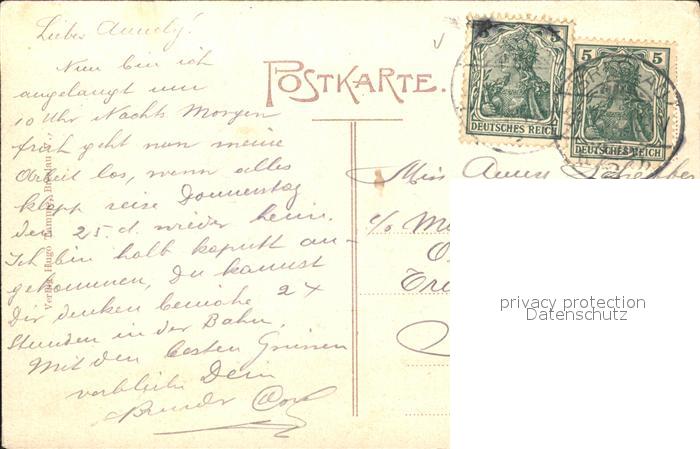 Liebes Annely!
Nun bin ich
angelangt um
10 Uhr Nachts Morgen
früh geht nun meine
Arbeit los, wenn alles
klapt reise Donnerstag
den 25. d. wieder heim.
Ich bin halb kaputt an-
gekommen, Du kannst
Dir denken beinahe 24
Stunden in der Bahn.
Mit den besten Grüssen
verbleibe Dein
Bruder
POSTKARTE.
5 5
DEUTSCHES REICH
5 5
DEUTSCHES REICH
Miss
c/o
Verlag Hugo
privacy protection
Datenschutz